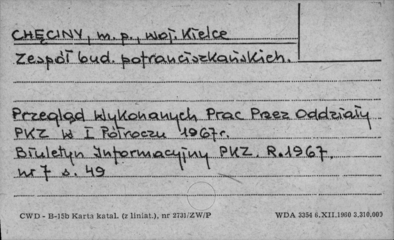 CHĘCINY, m.p., woj. Kielce
Zespół bud. pofranciszkańskich.
Przegląd Wykonanych Prac Przez Oddziały
PKZ W I Półroczu 1967r.
Biuletyn Informacyjny PKZ. R.1967.
nr 7 s. 49
CWD - B-15b Karta katal. (z liniat.), nr 2731/ZW/P WDA 3354 6.XII.1960 3,310,000